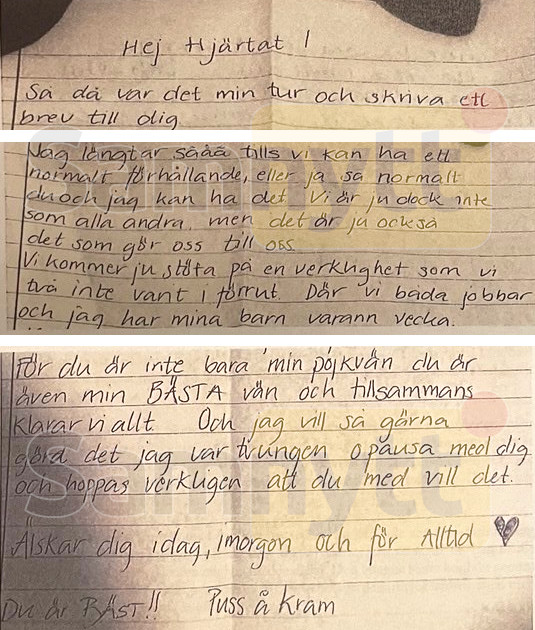 Hej Hjärtat !
Så då var det min tur och skriva ett
brev till dig
Jag längtar sååå tills vi kan ha ett
normalt förhållande, eller ja så normalt
du och jag kan ha det. Vi är ju dock inte
som alla andra, men det är ju också
det som gör oss till oss
Vi kommer ju stöta på en verklighet som vi
två inte vart i förrut. Där vi båda jobbar
och jag har mina barn varann vecka.
För du är inte bara min pojkvän du är
även min BÄSTA vän och tillsammans
klarar vi allt Och jag vill så gärna
göra det jag var tvungen o pausa med dig
och hoppas verkligen att du med vill det.
Älskar dig idag, imorgon och för Alltid
Du är BÄST!! Puss å kram
Samnytt
Samnytt